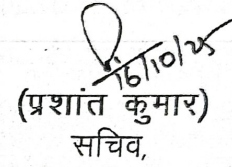 16/10/25
(प्रशांत कुमार)
सचिव,